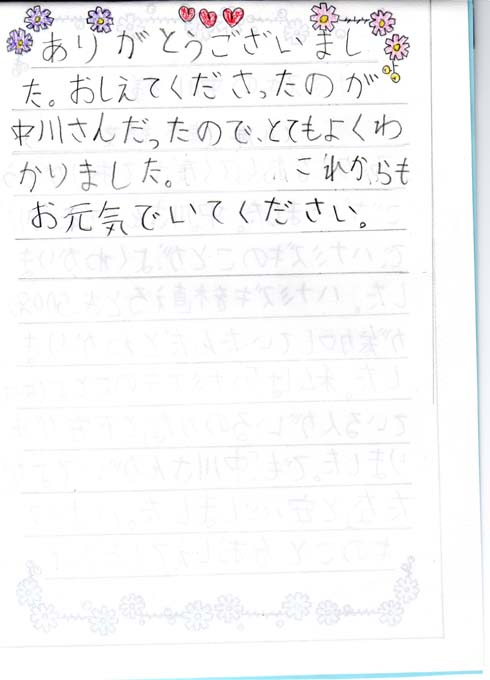 ありがとうございまし
た。おしえてくださったのが
中川さんだったので、とてもよくわ
かりました。 これからも
お元気でいてください。